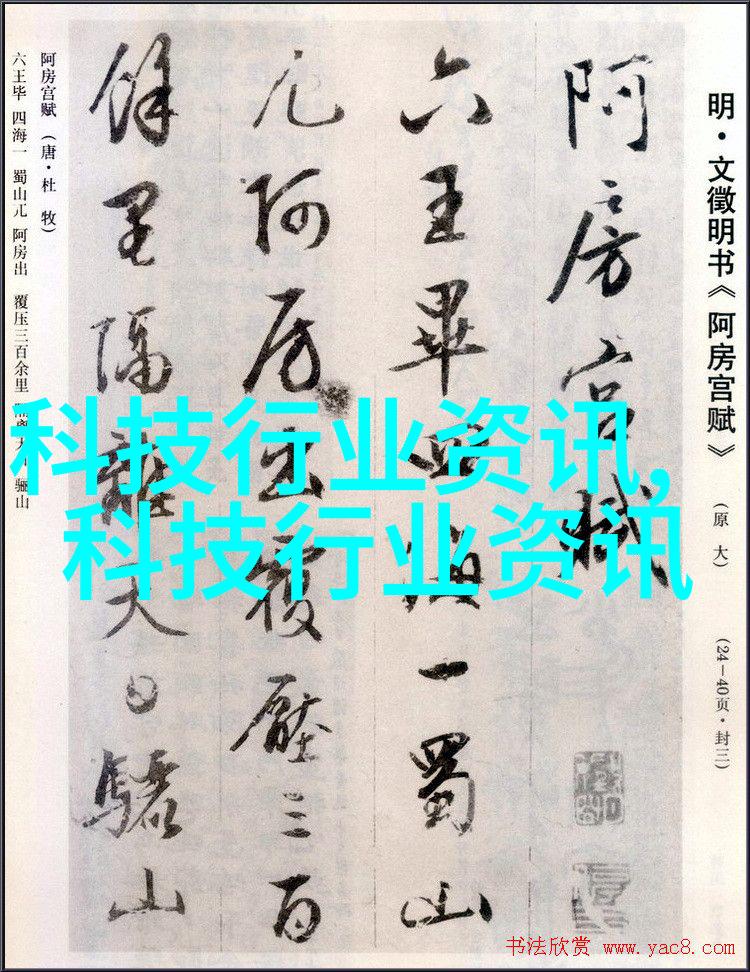 明·文徵明书《阿房宫赋》（原大）（24—40页·封三）
阿房宫赋
六王畢四海一蜀山
兀阿房出覆壓三百
餘里隔離天日驪山
阿房宫赋（唐·杜 牧）
六王毕 四海一 蜀山兀 阿房出 覆压三百余里 骊山
科技行业资讯,
科技行业资讯
书法欣赏 www.yac8.com